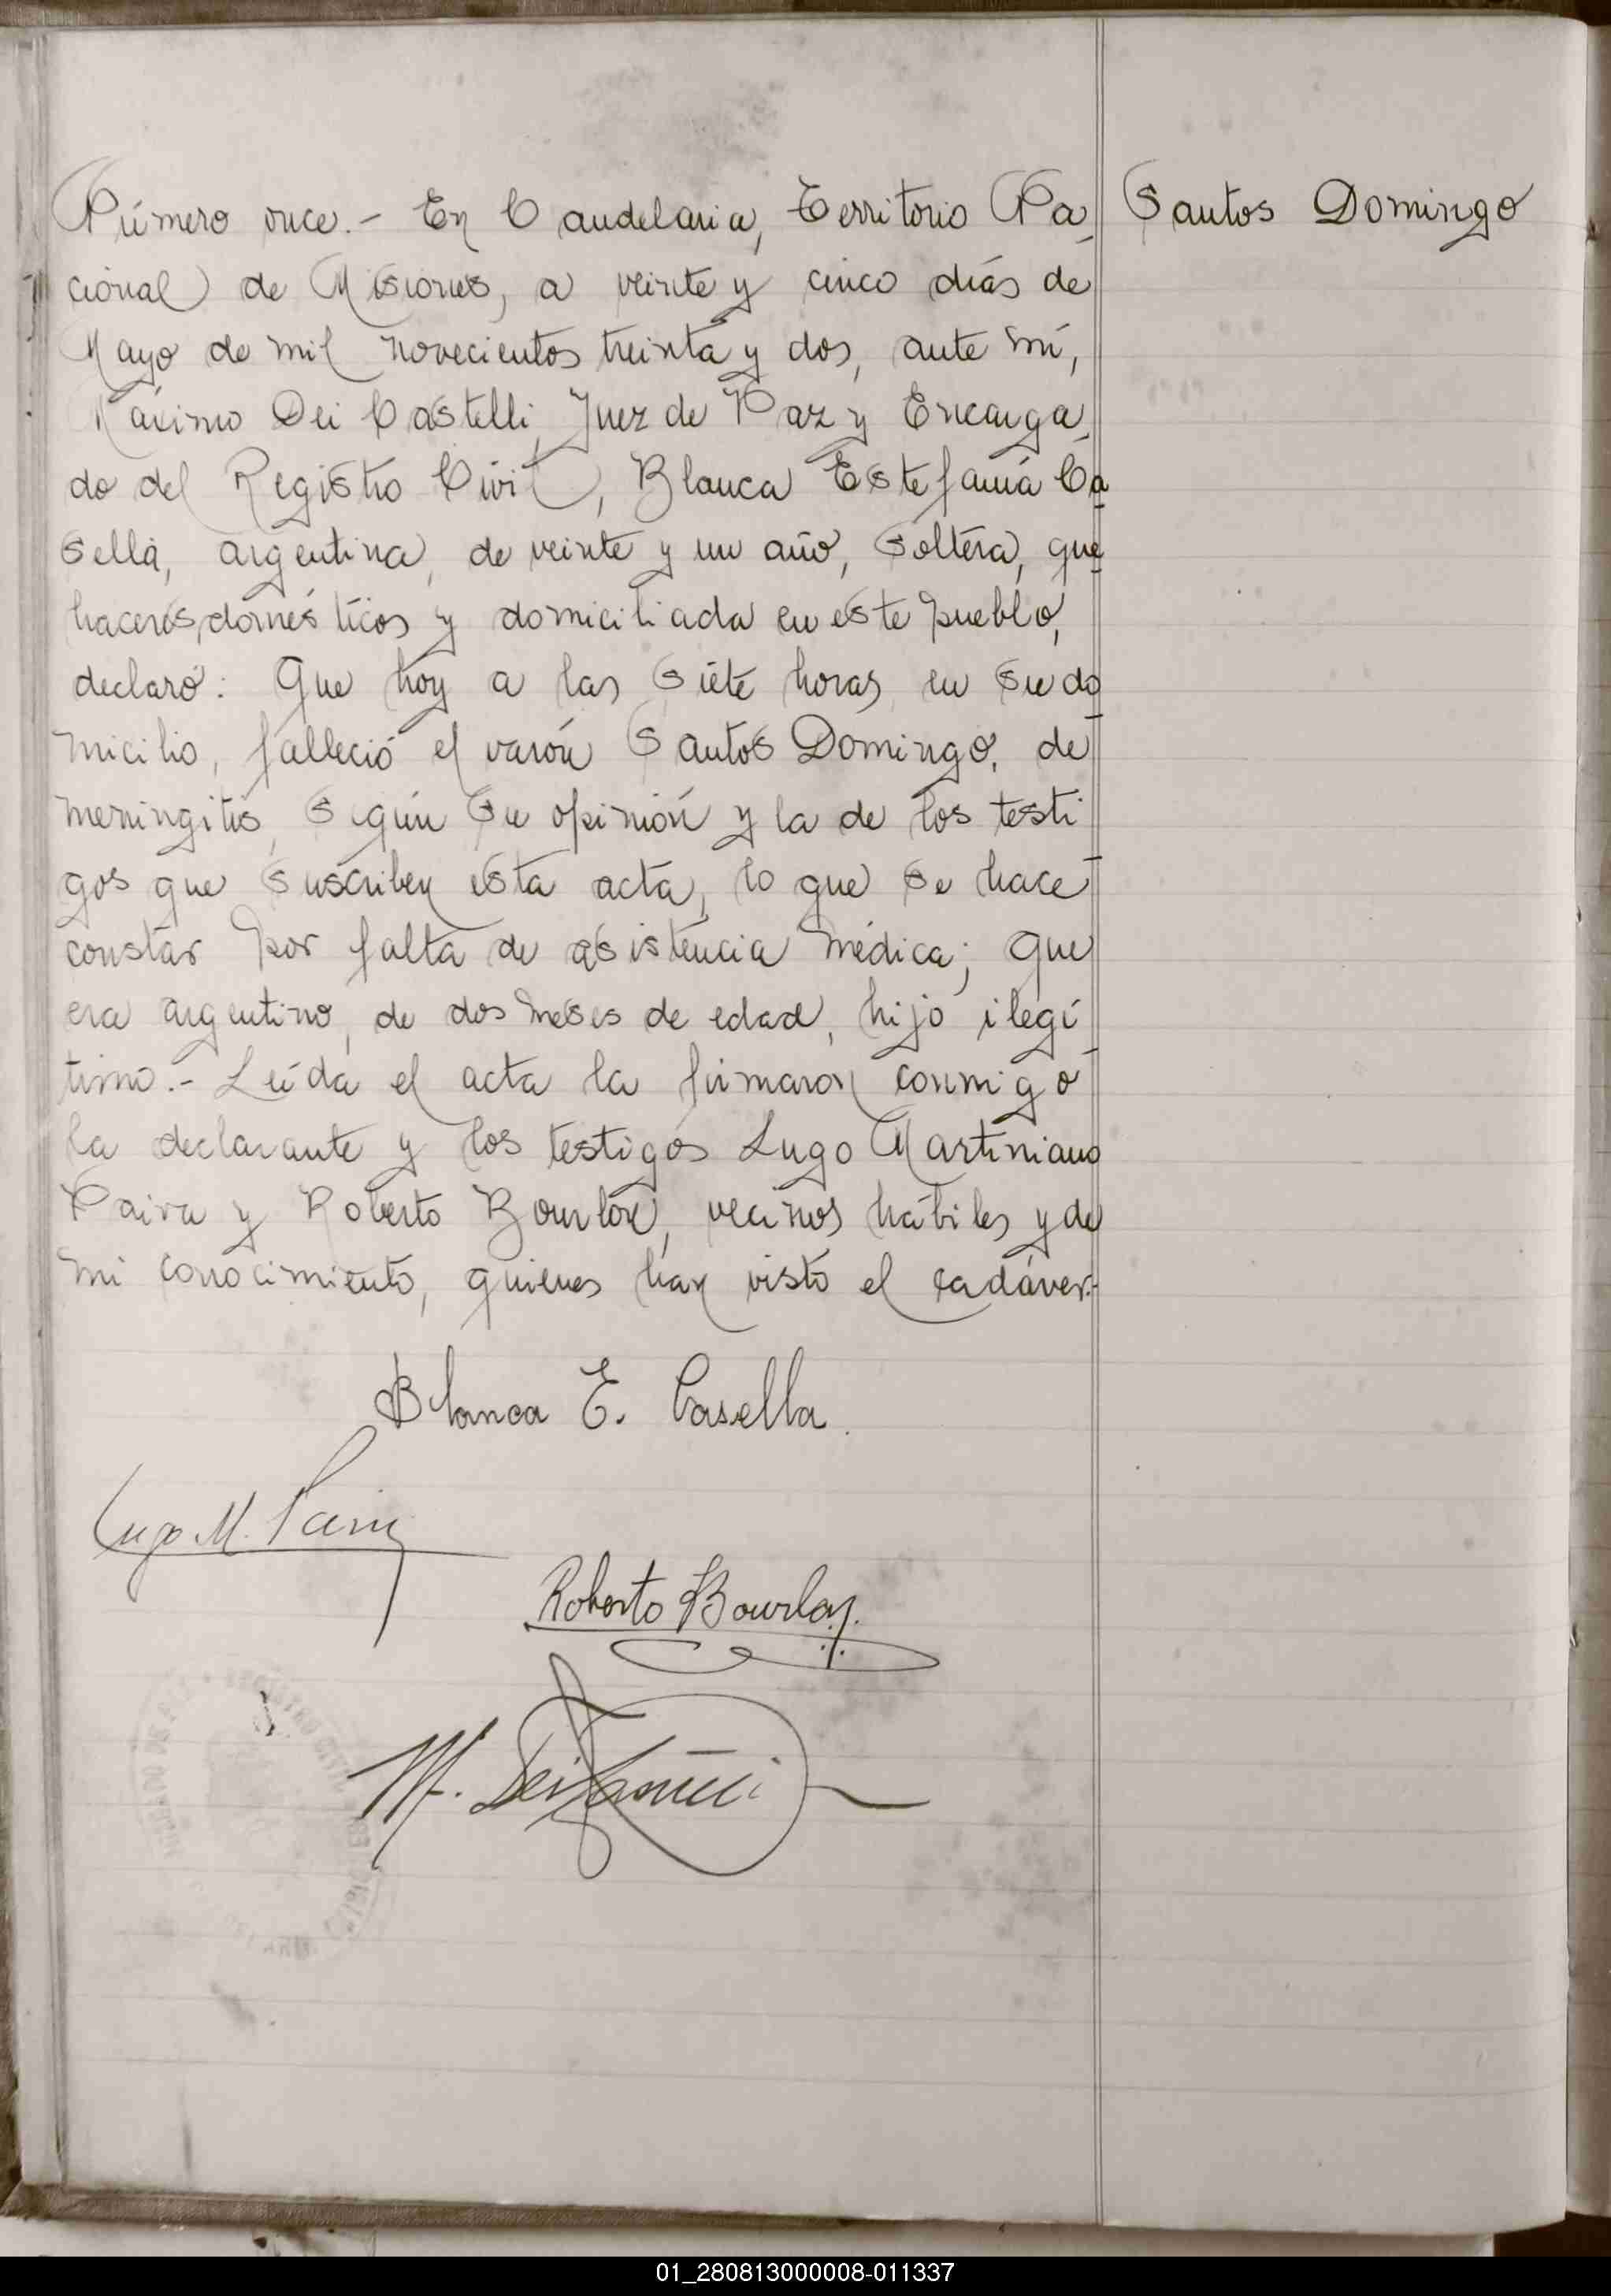 Número once.- En Candelaria, Territorio Na-
cional de Misiones, a veinte y cinco días de
Mayo de mil novecientos treinta y dos, ante mí,
Máximo Dei Castelli, Juez de Paz y Encarga-
do del Registro Civil, Blanca Estefanía Ca-
sella, argentina, de veinte y un año, soltera, que-
haceres domésticos y domiciliada en este pueblo,
declaró: Que hoy a las siete horas, en su do-
micilio, falleció el varón Santos Domingo, de
meningitis, según su opinión y la de los testi-
gos que suscriben esta acta, lo que se hace
constar por falta de asistencia médica; que
era argentino, de dos meses de edad, hijo ilegí-
timo.- Leída el acta la firmaron conmigo
la declarante y los testigos Lugo Martiniano
Paiva y Roberto Bourlon, vecinos hábiles y de
mi conocimiento, quienes han visto el cadáver.-
Santos Domingo
Blanca E. Casella.
Lugo M. Paiva
Roberto Bourlon
M. Dei Castelli
01_280813000008-011337